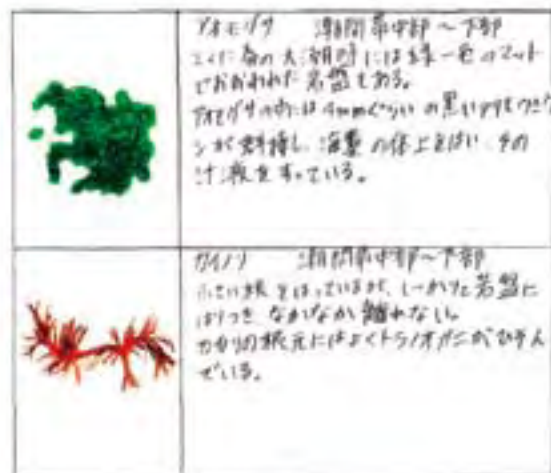 アオモグサ 潮間帯中部～下部
とくに春の大潮時には緑一色のマット
でおおわれた岩盤もある。
アオモグサの中には4mmぐらいの黒い
シが群棲し、海藻の体上をはい、その
汁液をすっている。
カイノリ 潮間帯中部～下部
小さい根をはっているが、しっかりと岩盤に
はりつき、なかなか離れない。
カイノリの根元にはよくトラノオガニがひそん
でいる。